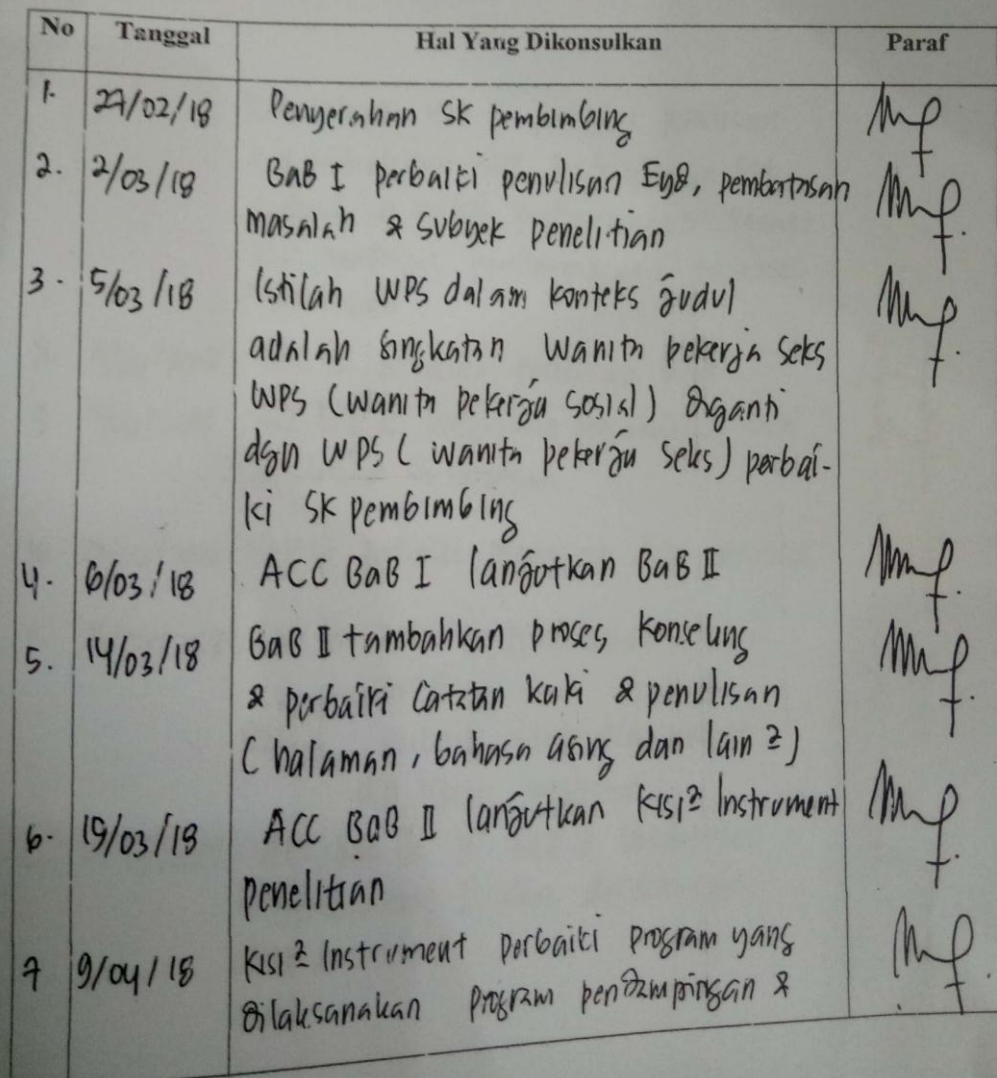 No Tanggal Hal Yang Dikonsulkan Paraf
1. 27/02/18 Penyerahan SK pembimbing
2. 2/03/18 BaB I perbaiki penulisan EyD, pembatasan
masalah & subyek penelitian
3. 5/03/18 Istilah WPS dalam konteks judul
adalah singkatan wanita pekerja seks
WPS (wanita pekerja sosial) diganti
dgn WPS (wanita pekerja seks) perbai-
ki SK pembimbing
4. 6/03/18 ACC BaB I lanjutkan BaB II
5. 14/03/18 BaB II tambahkan proses konseling
& perbaiki catatan kaki & penulisan
(halaman, bahasa asing dan lain2)
6. 19/03/18 ACC BaB II lanjutkan kisi2 Instrument
penelitian
7 9/04/18 Kisi2 Instrument perbaiki program yang
dilaksanakan program pendampingan &